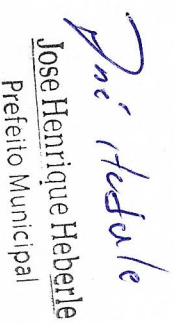 José Heberle
Jose Henrique Heberle
Prefeito Municipal